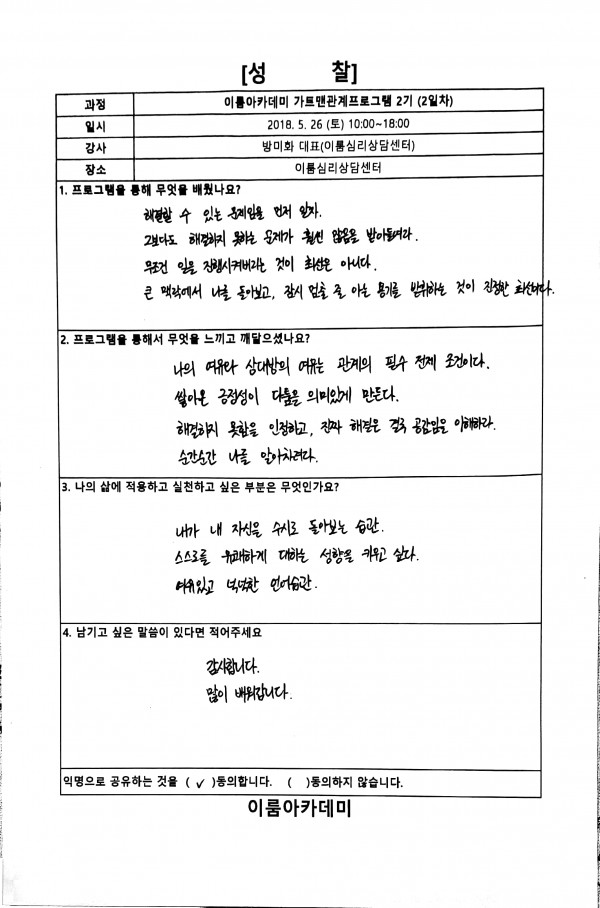 [성 찰]
과정 이룸아카데미 가트맨관계프로그램 2기 (2일차)
일시 2018. 5. 26 (토) 10:00~18:00
강사 방미화 대표(이룸심리상담센터)
장소 이룸심리상담센터
1. 프로그램을 통해 무엇을 배웠나요?
해결할 수 있는 문제임을 먼저 알자.
그보다도 해결하지 못하는 문제가 훨씬 많음을 받아들여라.
무조건 일을 진행시켜버리는 것이 최선은 아니다.
큰 맥락에서 나를 돌아보고, 잠시 멈출 줄 아는 용기를 발휘하는 것이 진정한 최선이다.
2. 프로그램을 통해서 무엇을 느끼고 깨달으셨나요?
나의 여유와 상대방의 여유는 관계의 필수 전제 조건이다.
쌓아온 긍정성이 다툼을 의미있게 만든다.
해결하지 못함을 인정하고, 진짜 해결은 결국 공감임을 이해하라.
순간순간 나를 알아차려라.
3. 나의 삶에 적용하고 실천하고 싶은 부분은 무엇인가요?
내가 내 자신을 수시로 돌아보는 습관.
스스로를 유쾌하게 대하는 성향을 키우고 싶다.
여유있고 넉넉한 언어습관.
4. 남기고 싶은 말씀이 있다면 적어주세요
감사합니다.
많이 배워갑니다.
익명으로 공유하는 것을 ( ✓ )동의합니다. ( )동의하지 않습니다.
이룸아카데미